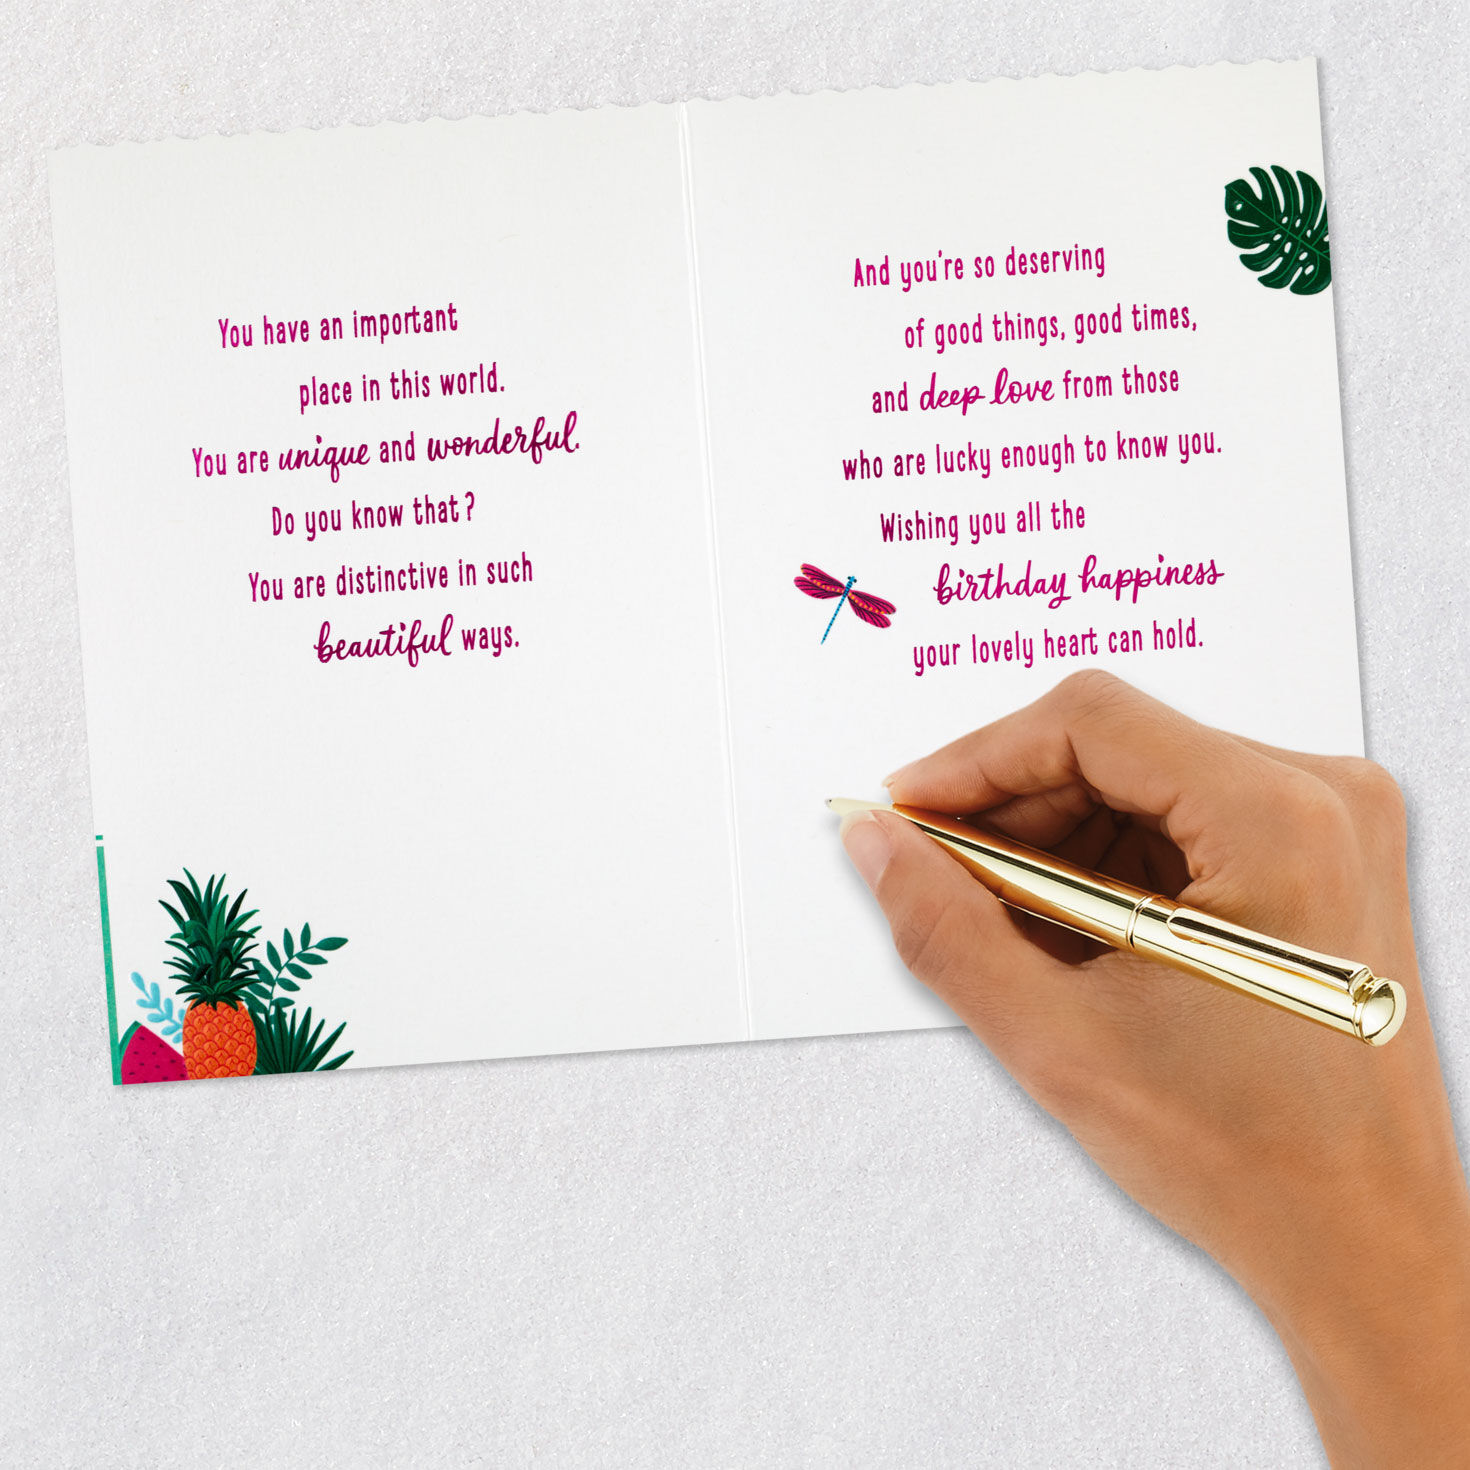 You have an important
place in this world.
You are unique and wonderful.
Do you know that?
You are distinctive in such
beautiful ways.
And you're so deserving
of good things, good times,
and deep love from those
who are lucky enough to know you.
Wishing you all the
birthday happiness
your lovely heart can hold.